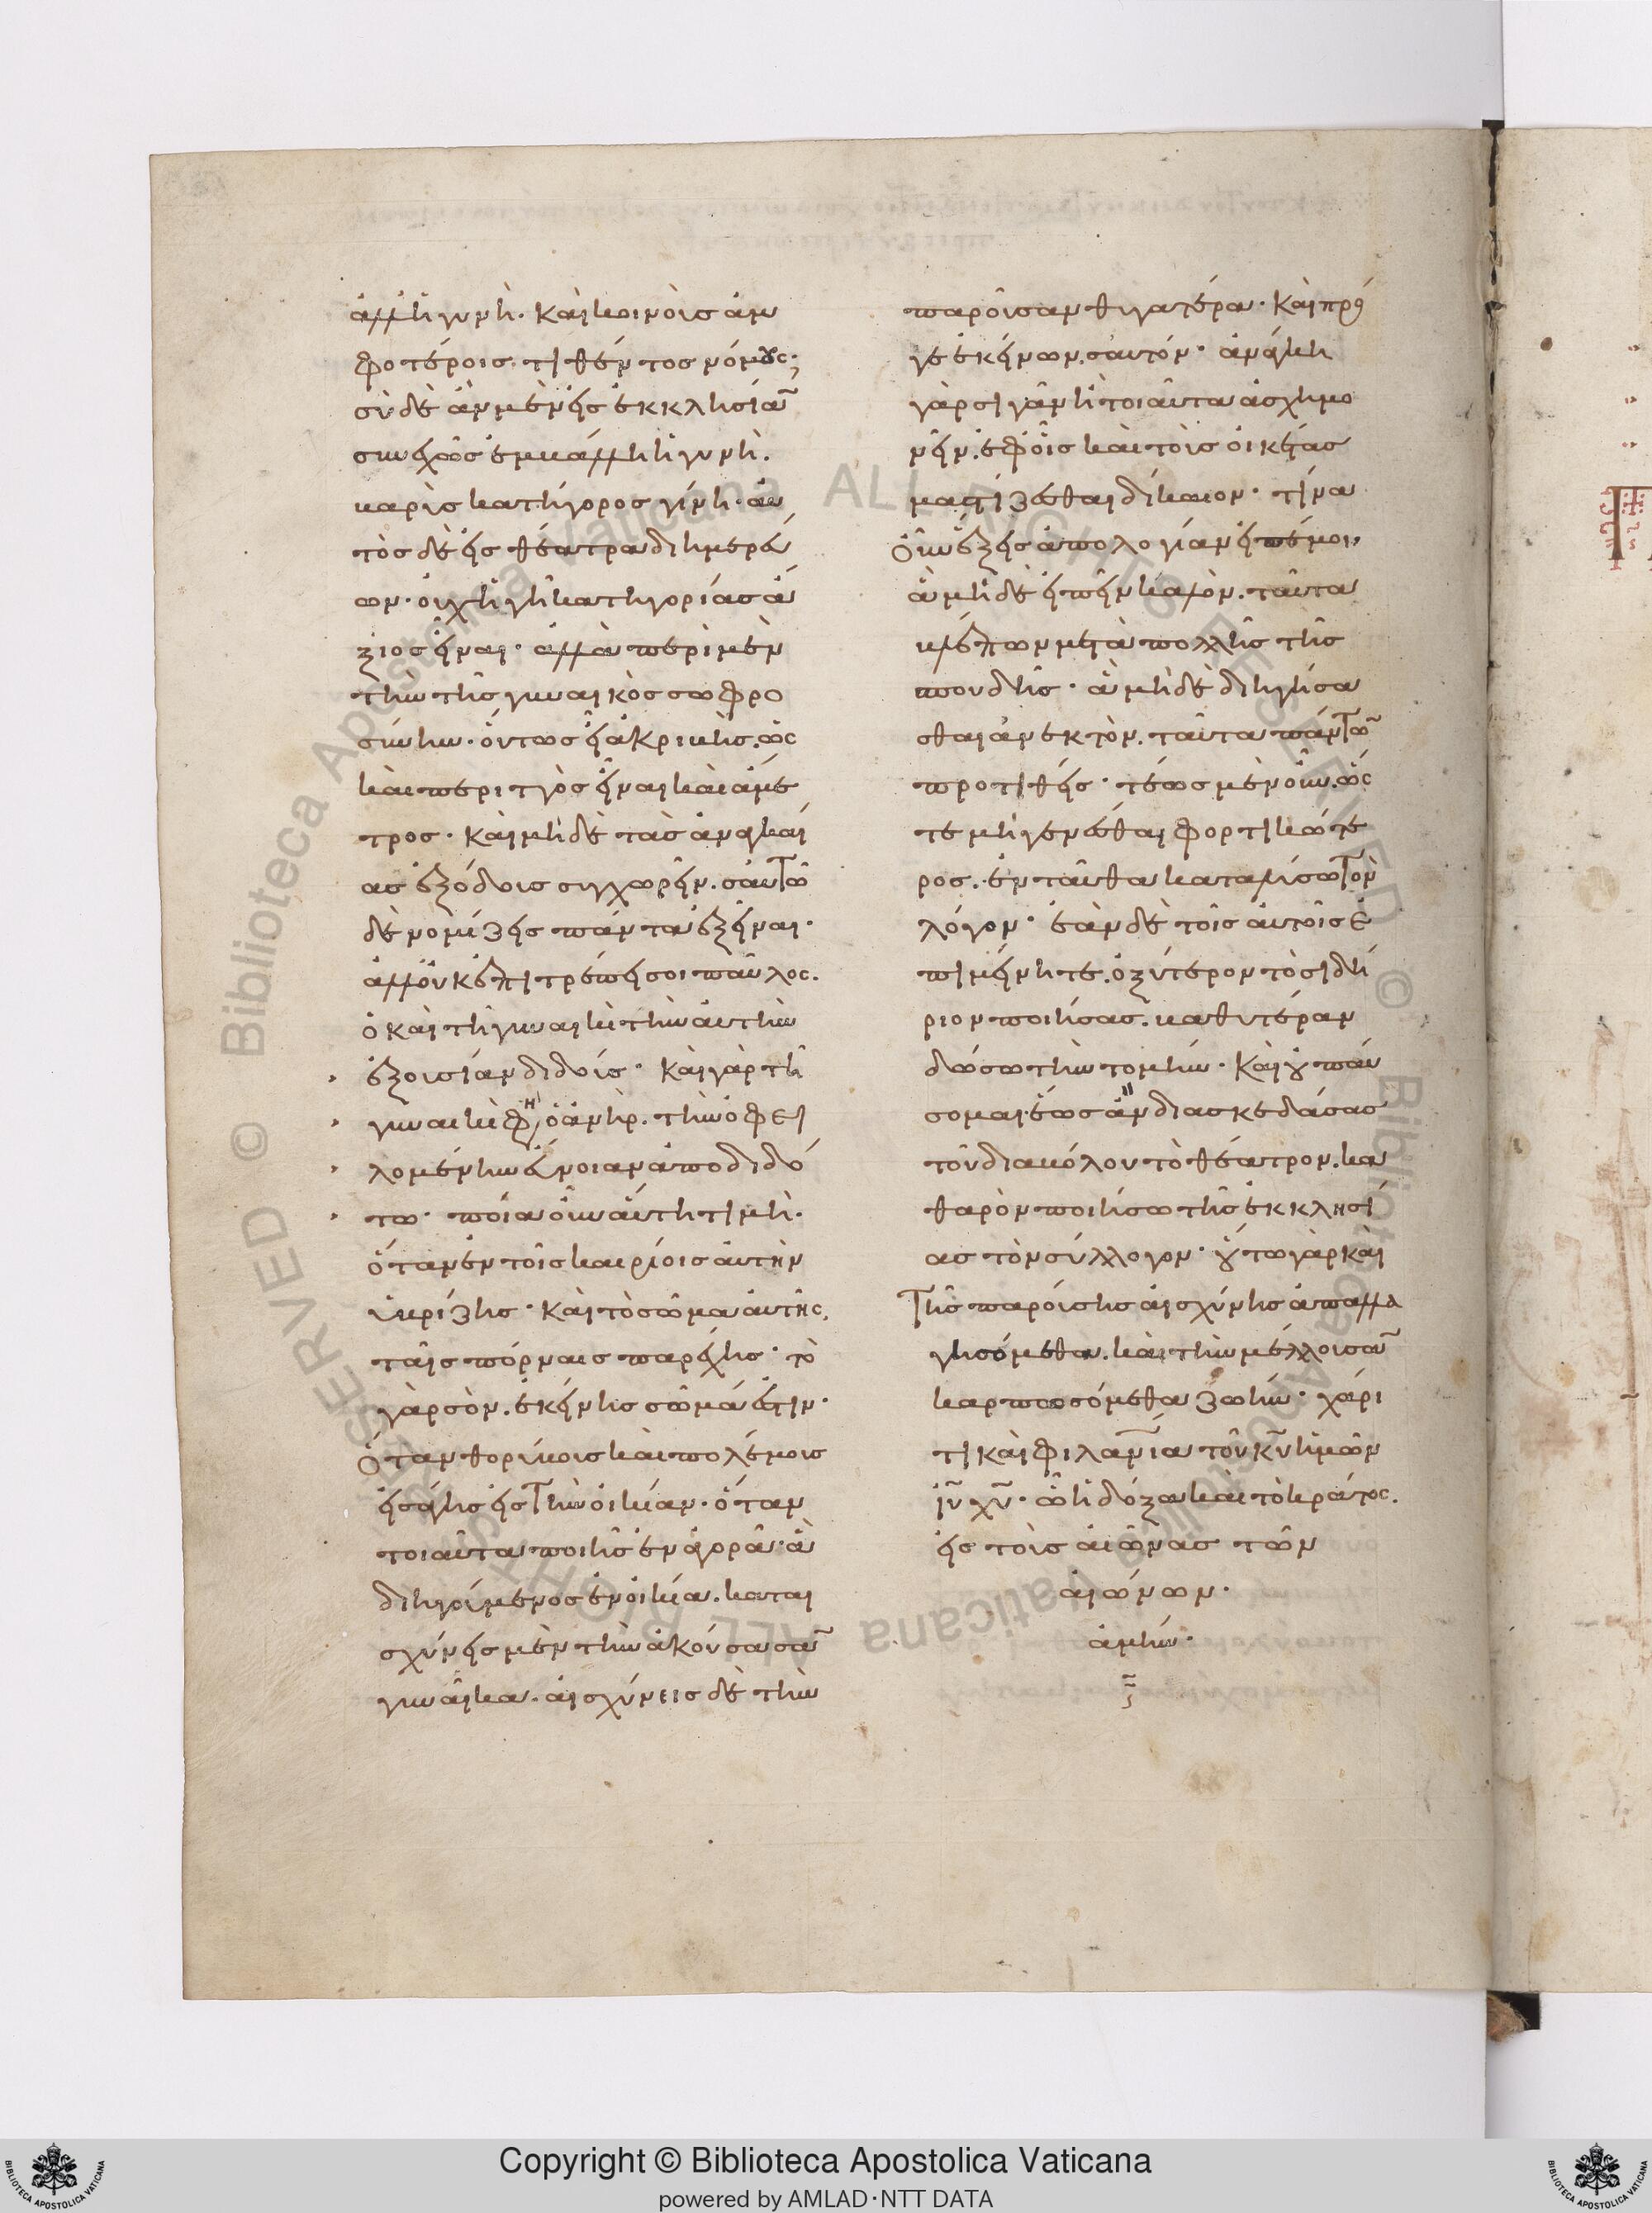 ἀλλὴ γυνὴ· καὶ κοινοὺς ἀμ
φοτέροις τιθέντος νόμους·
σὺ δὲ ἂν μὲν εἰς ἐκκλησίαν
συνεχῶς ἐμβάλλη ἡ γυνὴ.
βαρὺς κατήγορος γίνη· αὐ
τὸς δὲ εἰς θέατρα διημερεύ
ων· οὐχ ἡγῆ κατηγορίας ἄ
ξιος εἶναι· ἀλλὰ περὶ μὲν
τὴν τῆς γυναικὸς σωφρο
σύνην· οὕτως εἶ ἀκριβὴς. ὡς
καὶ περιττὸς εἶναι καὶ ἄμε
τρος· καὶ μηδὲ τὰς ἀναγκαί
ας ἐξόδους συγχωρεῖν. σαυτῶ
δὲ νομίζεις πάντα ἐξεῖναι·
ἀλλ' οὐκ ἐπιτρέπει σοι παῦλος.
ὁ καὶ τῆ γυναικὶ τὴν αὐτὴν
ἐξουσίαν διδούς· καὶ γὰρ τῆ
γυναικὶ φησὶ, ὁ ἀνὴρ. τὴν ὀφει
λομένην εὔνοιαν ἀποδιδό
τω· ποία οὖν αὕτη τιμὴ.
ὅταν ἐν τοῖς καιρίοις αὐτὴν
ὑβρίζης· καὶ τὸ σῶμα αὐτῆς,
ταῖς πόρναις παρέχης· τὸ
γὰρ σὸν. ἐκείνης σῶμά ἐστιν·
ὅταν θορύβους καὶ πολέμους
εἰσάγης εἰς τὴν οἰκίαν· ὅταν
τοιαῦτα ποιῆς ἐν ἀγορᾶ· ἃ
διηγούμενος ἐν οἰκία. καται
σχύνεις μὲν τὴν ἀκούσασαν
γυναῖκα. αἰσχύνεις δὲ τὴν
παροῦσαν θυγατέρα· καὶ πρό
γε ἐκείνων. σαυτόν· ἀνάγκη
γὰρ σιγᾶν ἢ τοιαῦτα ἀσχημο
νεῖν. ἐφ' οἷς καὶ τοὺς οἰκέτας
μαστίζεσθαι δίκαιον· τίνα
οὖν ἕξεις ἀπολογίαν εἰπέ μοι,
ἃ μηδὲ εἰπεῖν καλὸν. ταῦτα
βλέπων μετὰ πολλῆς τῆς
σπουδῆς· ἃ μηδὲ διηγήσα
σθαι ἀνεκτὸν. ταῦτα πάντων
προτιθεὶς· τέως μὲν οὖν. ὥς
τε μὴ γενέσθαι φορτικώτε
ρος. ἐνταῦθα καταλύσω τὸν
λόγον· ἐὰν δὲ τοῖς αὐτοῖς ἐ
πιμένητε. ὀξύτερον τὸ σιδή
ριον ποιήσας. βαθυτέραν
δώσω τὴν τομήν· καὶ οὐ παύ
σομαι ἕως ἂν διασκεδάσας
τοῦ διαβόλου τὸ θέατρον. κα
θαρὸν ποιήσω τῆς ἐκκλησί
ας τὸν σύλλογον· οὕτω γὰρ καὶ
τῆς παρούσης αἰσχύνης ἀπαλλα
γησόμεθα. καὶ τὴν μέλλουσαν
καρπωσόμεθα ζωήν· χάρι
τι καὶ φιλανίᾳ τοῦ κυ ἡμῶν
ιυ χυ· ὧ ἡ δόξα καὶ τὸ κράτος.
εἰς τοὺς αἰῶνας τῶν
αἰώνων·
ἀμήν·
Copyright © Biblioteca Apostolica Vaticana
powered by AMLAD·NTT DATA